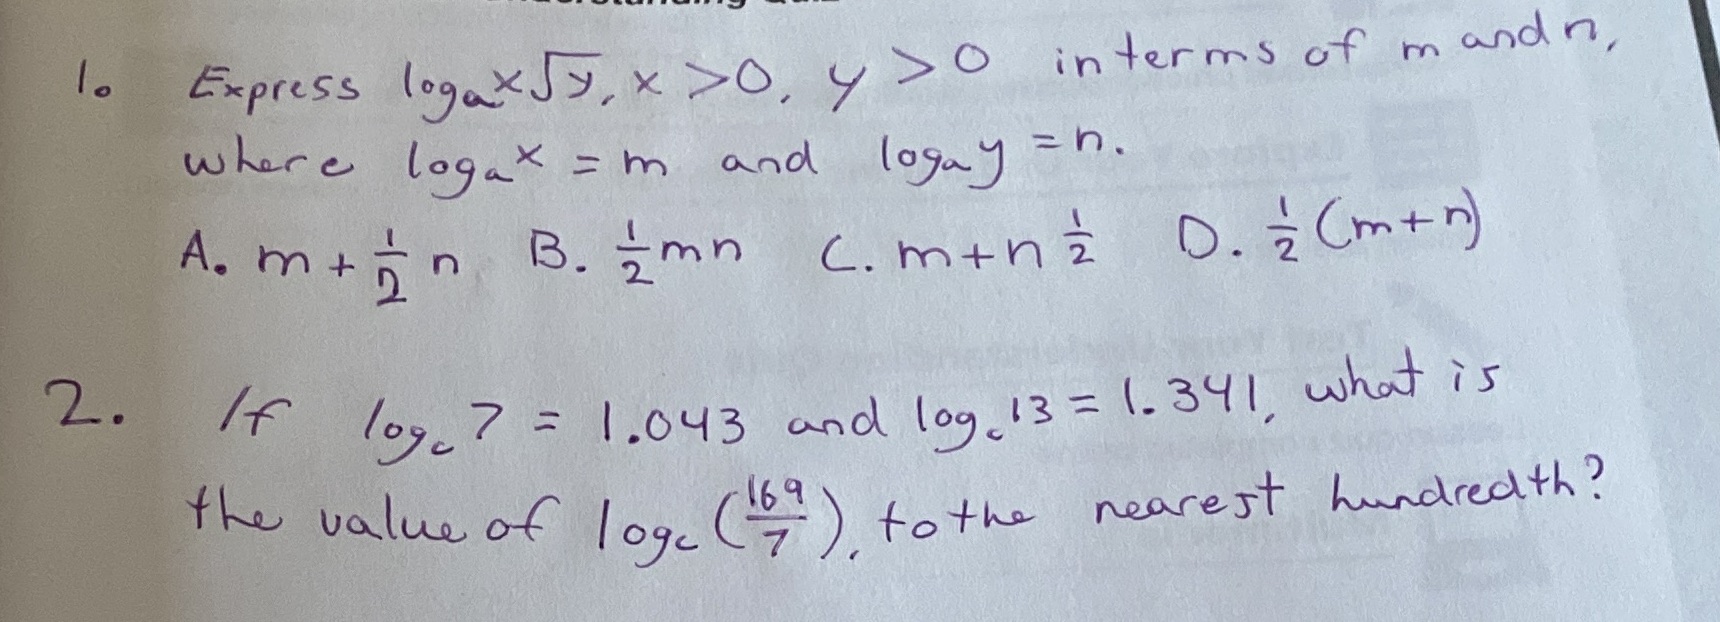 1. Express logₐx√y, x >0, y >0 in terms of m and n,
where logₐx = m and logₐy = n.
A. m + 1/2 n B. 1/2 mn C. m+n 1/2 D. 1/2 (m+n)
2. If log_c 7 = 1.043 and log_c 13 = 1.341, what is
the value of log_c (169/7), to the nearest hundredth?